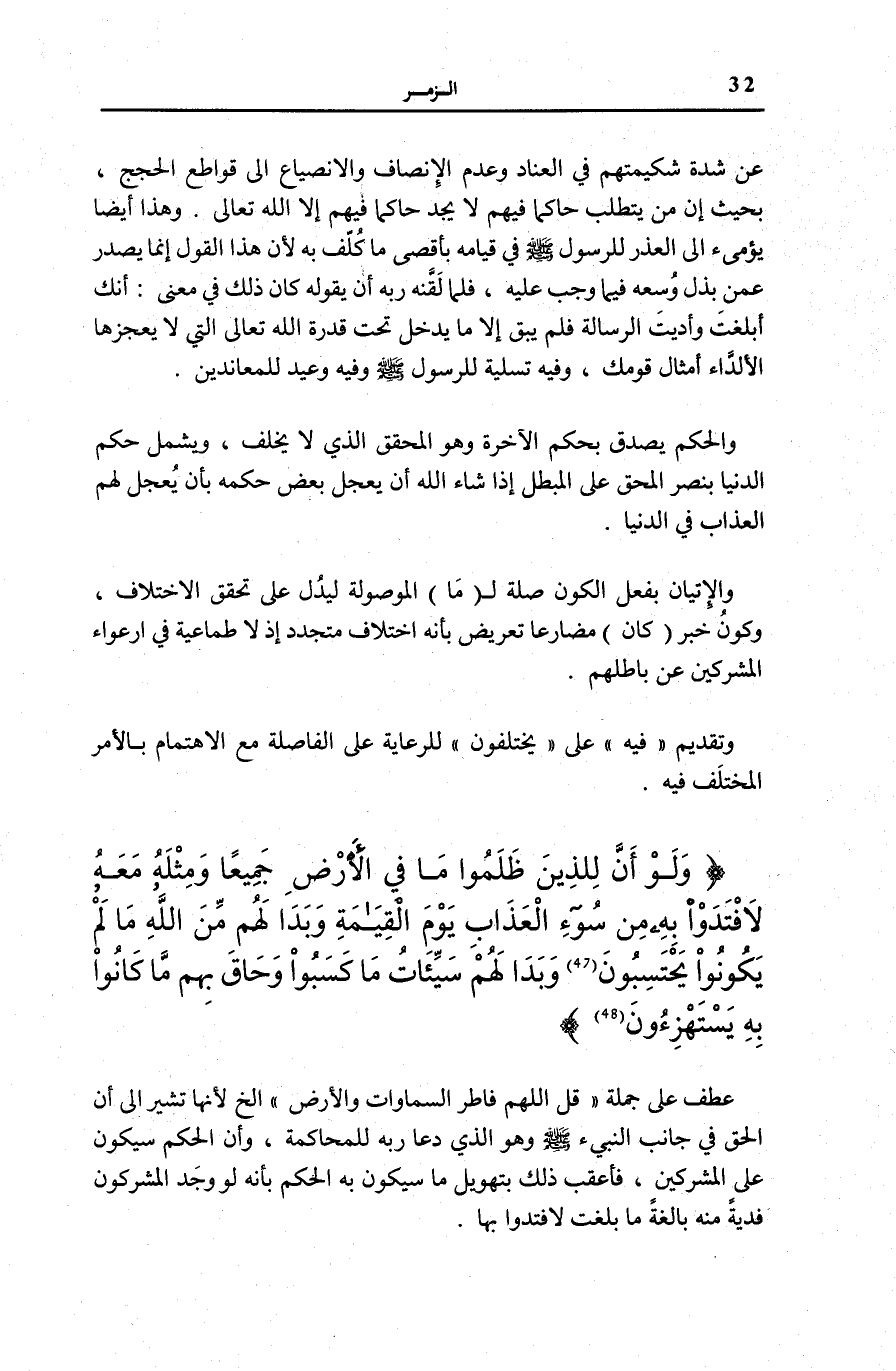 32
الـزمـر
عن شدة شكيمتهم في العناد وعدم الإنصاف والانصياع الى قواطع الحجج ،
بحيث إن من يتطلب حاكما فيهم لا يجد حاكما فيهم إلا الله تعالى . وهذا أيضا
يؤمىء الى العذر للرسول ﷺ في قيامه بأقصى ما كُلّف به لأن هذا القول إنما يصدر
عمن بذل وُسعه فيما وجب عليه ، فلما لَقَّنه ربه أن يقوله كان ذلك في معنى : أنك
أبلغتَ وأديتَ الرسالة فلم يبق إلا ما يدخل تحت قدرة الله تعالى التي لا يعجزها
الألدَّاء أمثال قومك ، وفيه تسلية للرسول ﷺ وفيه وعيد للمعاندين .
والحكم يصدق بحكم الآخرة وهو المحقق الذي لا يخلف ، ويشمل حكم
الدنيا بنصر المحق على المبطل إذا شاء الله أن يعجل بعض حكمه بأن يُعجل لهم
العذاب في الدنيا .
والإتيان بفعل الكون صلة لـ( مَا ) الموصولة ليدُل على تحقق الاختلاف ،
وكونُ خبر ( كان ) مضارعا تعريض بأنه اختلاف متجدد إذ لا طماعية في ارعواء
المشركين عن باطلهم .
وتقديم « فيه » على « يختلفون » للرعاية على الفاصلة مع الاهتمام بـالأمر
المختلَف فيه .
﴿ وَلَـوْ أَنَّ لِلذِينَ ظَلَمُوا مَـا فِي الْأَرْضِ جَمِيعًا وَمِثْلَهُۥ مَعَـهُۥ
لَافْتَدَوْاْ بِهِۦ مِن سُوٓءِ الْعَذَابِ يَوْمَ الْقِيَـٰمَةِ وَبَدَا لَهُم مِّنَ اللَّهِ مَا لَمْ
يَكُونُواْ يَحْتَسِبُونَ(47) وَبَدَا لَهُمْ سَيِّئَاتُ مَا كَسَبُواْ وَحَاقَ بِهِم مَّا كَانُواْ
بِهِ يَسْتَهْزِءُونَ(48) ﴾
عطف على جملة « قل اللهم فاطر السماوات والأرض » الخ لأنها تشير الى أن
الحق في جانب النبيء ﷺ وهو الذي دعا ربه للمحاكمة ، وأن الحكم سيكون
على المشركين ، فأعقب ذلك بتهويل ما سيكون به الحكم بأنه لو وجَد المشركون
فديةً منه بالغةً ما بلغت لافتدوا بها .